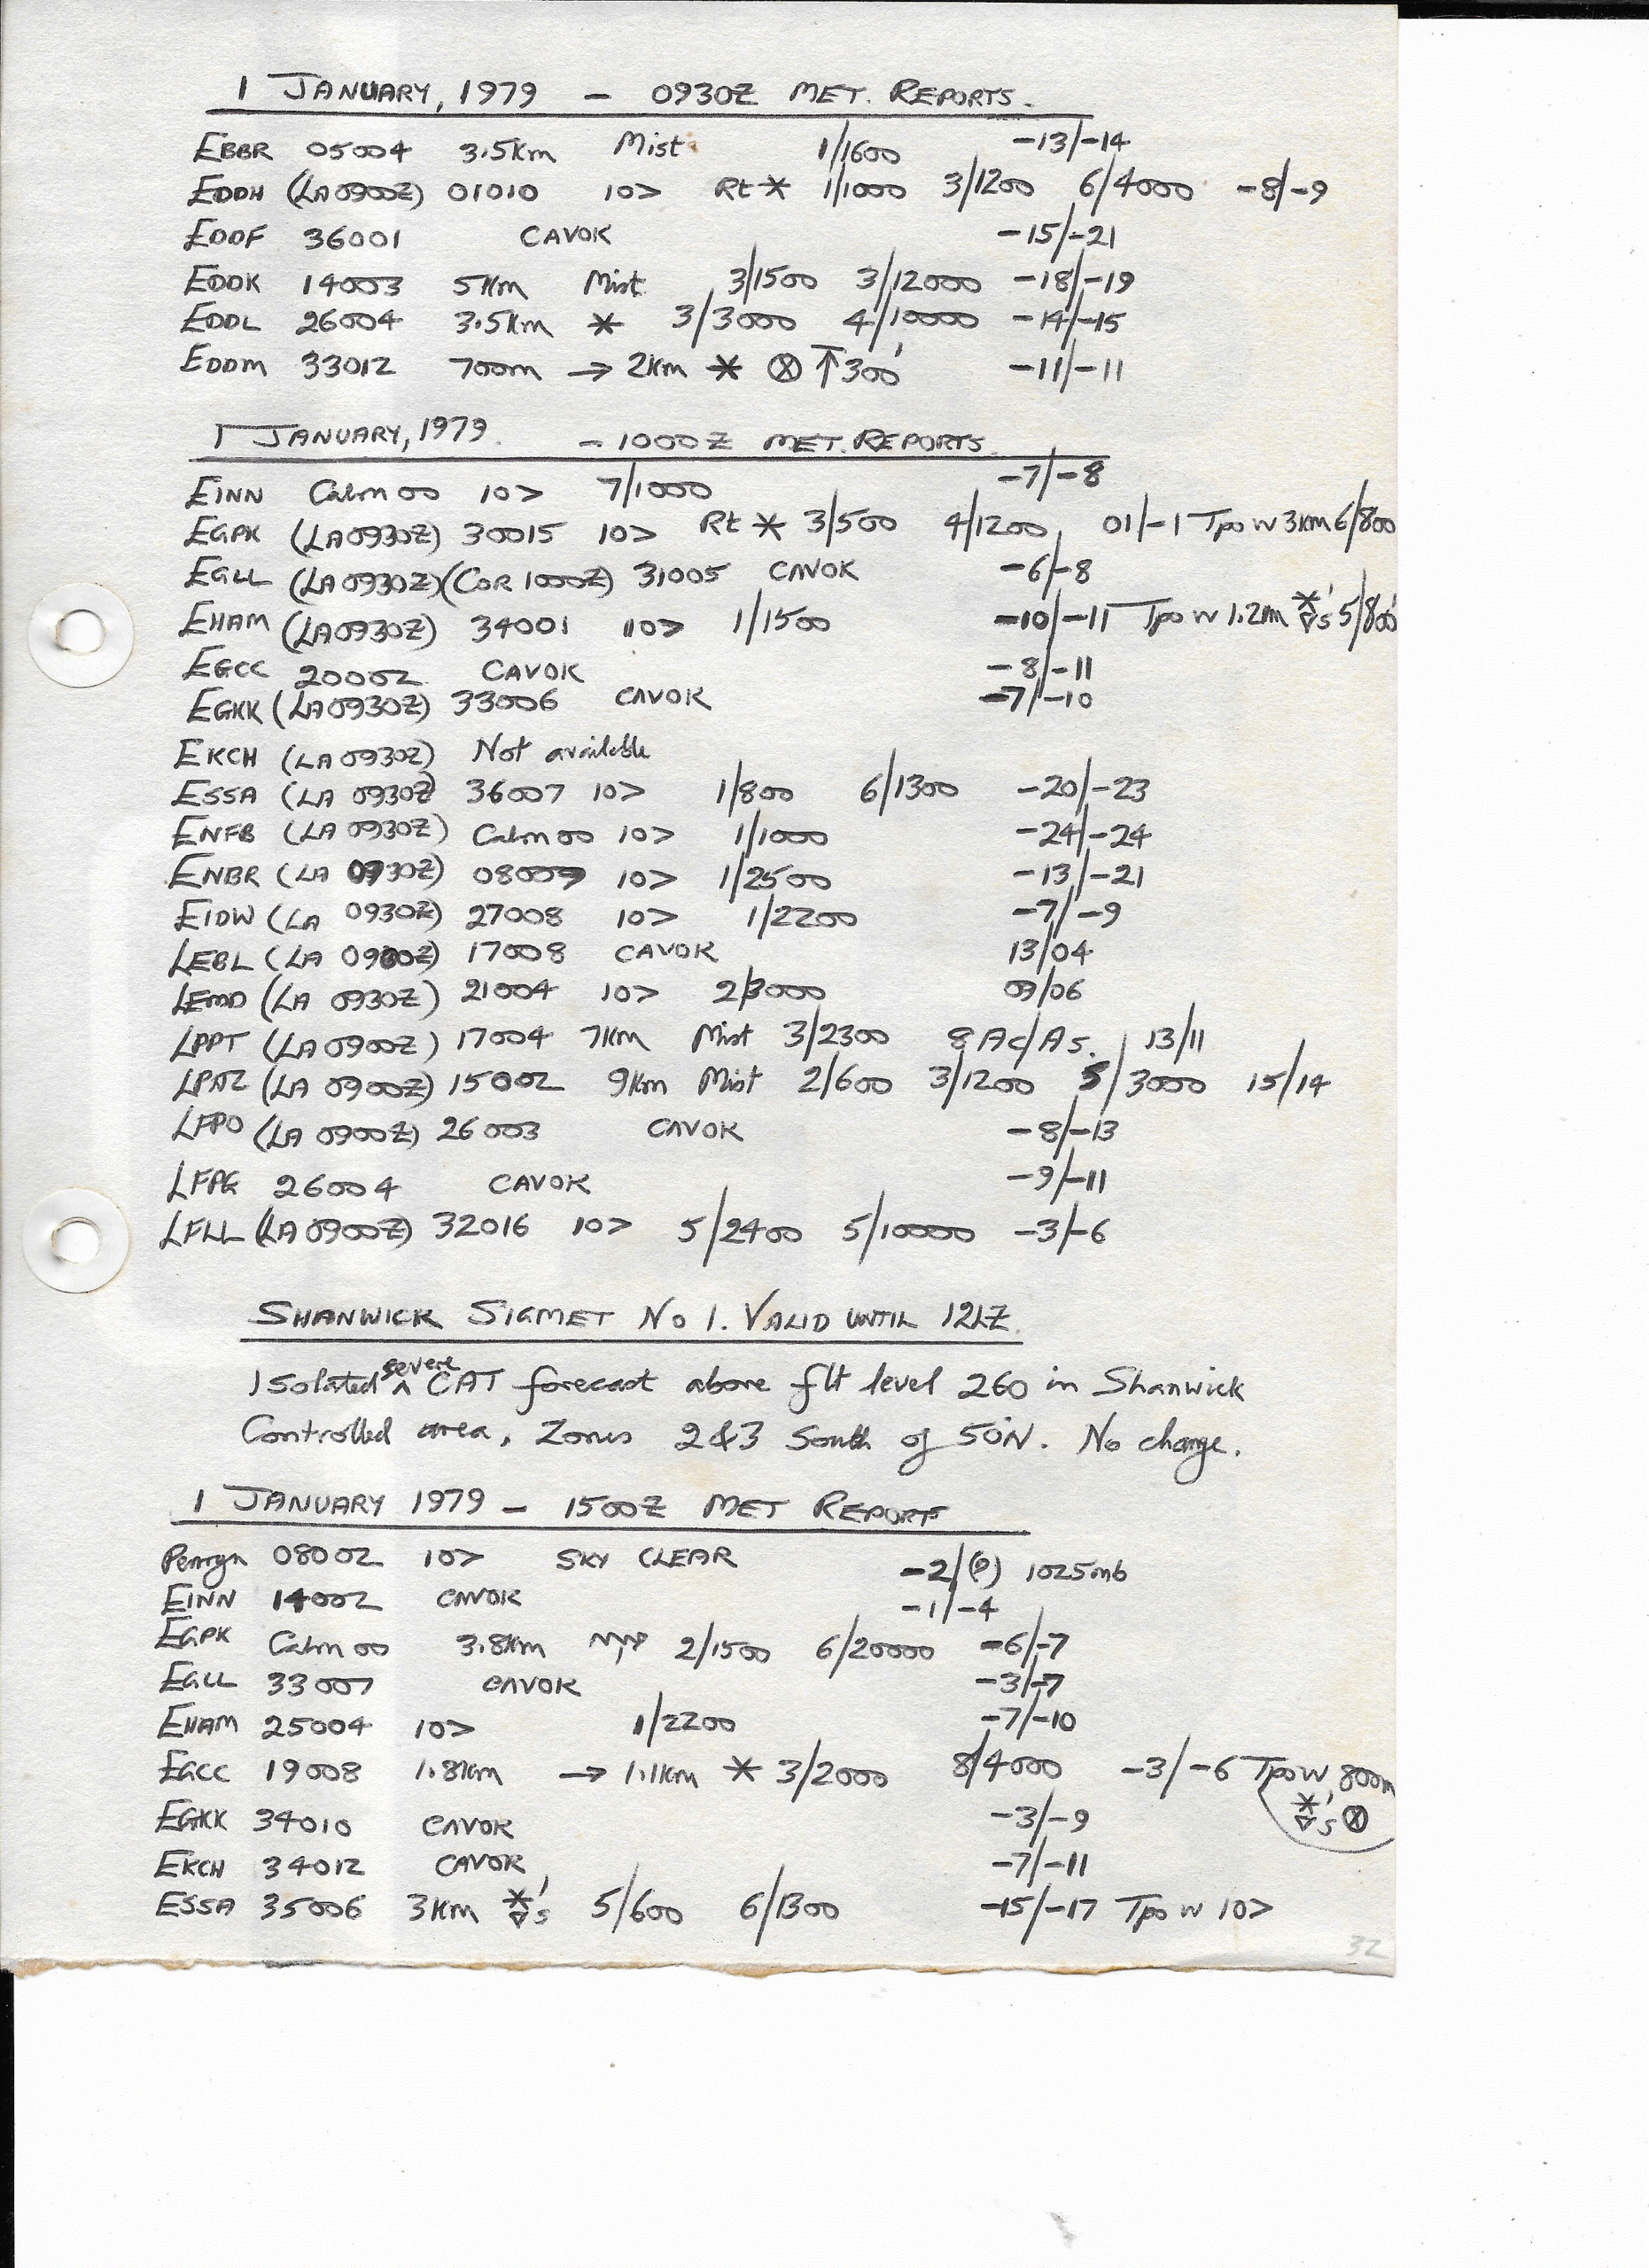 1 JANUARY, 1979 - 0930Z MET. REPORTS.
EBBR 05004 3.5km Mist 1/1600 -13/-14
EDDH (LA0900Z) 01010 10> Rt * 1/1000 3/1200 6/4000 -8/-9
EDDF 36001 CAVOK -15/-21
EDDK 14003 5km Mist 3/1500 3/12000 -18/-19
EDDL 26004 3.5km * 3/3000 4/10000 -14/-15
EDDM 33012 700m → 2km * ⊗ ↑300' -11/-11
1 JANUARY, 1979. - 1000Z MET. REPORTS.
EINN Calm 00 10> 7/1000 -7/-8
EGPK (LA0930Z) 30015 10> Rt * 3/500 4/1200 01/-1 Tpo w 3km 6/800
EGLL (LA0930Z)(COR 1000Z) 31005 CAVOK -6/-8
EHAM (LA0930Z) 34001 10> 1/1500 -10/-11 Tpo w 1.2m *▽'s 5/800'
EGCC 20002 CAVOK -8/-11
EGKK (LA0930Z) 33006 CAVOK -7/-10
EKCH (LA0930Z) Not available
ESSA (LA 0930Z) 36007 10> 1/800 6/1300 -20/-23
ENFB (LA 0930Z) Calm 00 10> 1/1000 -24/-24
ENBR (LA 0930Z) 08009 10> 1/2500 -13/-21
EIDW (LA 0930Z) 27008 10> 1/2200 -7/-9
LEBL (LA 0900Z) 17008 CAVOK 13/04
LEMD (LA 0930Z) 21004 10> 2/3000 09/06
LPPT (LA0900Z) 17004 7km Mist 3/2300 8 Ac/As. 13/11
LPAZ (LA 0900Z) 15002 9km Mist 2/600 3/1200 5/3000 15/14
LFPO (LA 0900Z) 26003 CAVOK -8/-13
LFPG 26004 CAVOK -9/-11
LFLL (LA0900Z) 32016 10> 5/2400 5/10000 -3/-6
SHANWICK SIGMET No 1. VALID UNTIL 12LZ.
Isolated severe ^ CAT forecast above flt level 260 in Shanwick
Controlled area, Zones 2&3 South of 50N. No change.
1 JANUARY 1979 - 1500Z MET REPORTS
Penryn 08002 10> SKY CLEAR -2/(?) 1025mb
EINN 14002 CAVOK -1/-4
EGPK Calm 00 3.8km 2/1500 6/20000 -6/-7
EGLL 33007 CAVOK -3/-7
EHAM 25004 10> 1/2200 -7/-10
EGCC 19008 1.8km → 1.1km * 3/2000 8/4000 -3/-6 Tpo w 800m
*▽'s ⊗
EGKK 34010 CAVOK -3/-9
EKCH 34012 CAVOK -7/-11
ESSA 35006 3km *▽'s 5/600 6/1300 -15/-17 Tpo w 10>
32